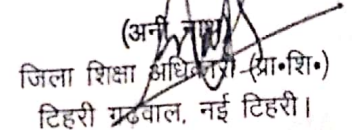 (अनी नाथ)
जिला शिक्षा अधिकारी (प्रा॰शि॰)
टिहरी गढवाल, नई टिहरी।